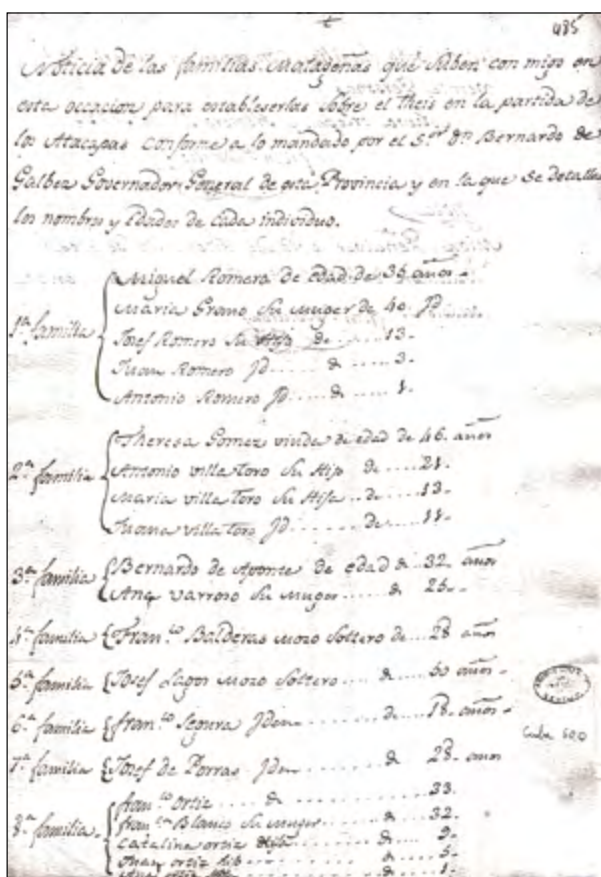 485
Noticia de las familias Malageñas que Suben con migo en
esta occacion para establecerlas Sobre el Theis en la partida de
los Attacapas conforme a lo mandado por el S.or Dn Bernardo de
Galbea Governador General de esta Provincia y en la que Se detalla
los nombres y Edades de cada individuo.
1ra familia Miguel Romero de edad de 36 años.
Maria Grano Su Muger de 40. Jd
Josef Romero Su Hijo de .... 13.
Juan Romero Jd .... de .... 3.
Antonio Romero Jd .... de .... 1.
2a familia Theresa Gomez viuda de edad de 46. años
Antonio villa Toro Su Hijo de .... 21.
Maria villa Toro Su Hija .. de .... 13.
Juana villa Toro Jd ..... de .... 11.
3ra familia Bernardo de Aponte de edad de 32. años
Ana Varroso Su Muger ..... de .... 25.
4ta familia Fran.co Balderas Mozo Soltero de .. 28 años
5ta familia Josef Lagos Mozo Soltero ... de ... años
6ta familia fran.co Segura Jdem ...... de .. 18. años
7a familia Josef de Porras Jdem ...... de .. 28. años
8a familia fran.co Ortiz .... de .... 33.
fran.ca Blanco Su Muger .... de .... 32.
Catalina ortiz Hija .... de .... 9.
Juan ortiz .... de .... 5.
Ana ortiz .... de .... 1.
Cuba 600